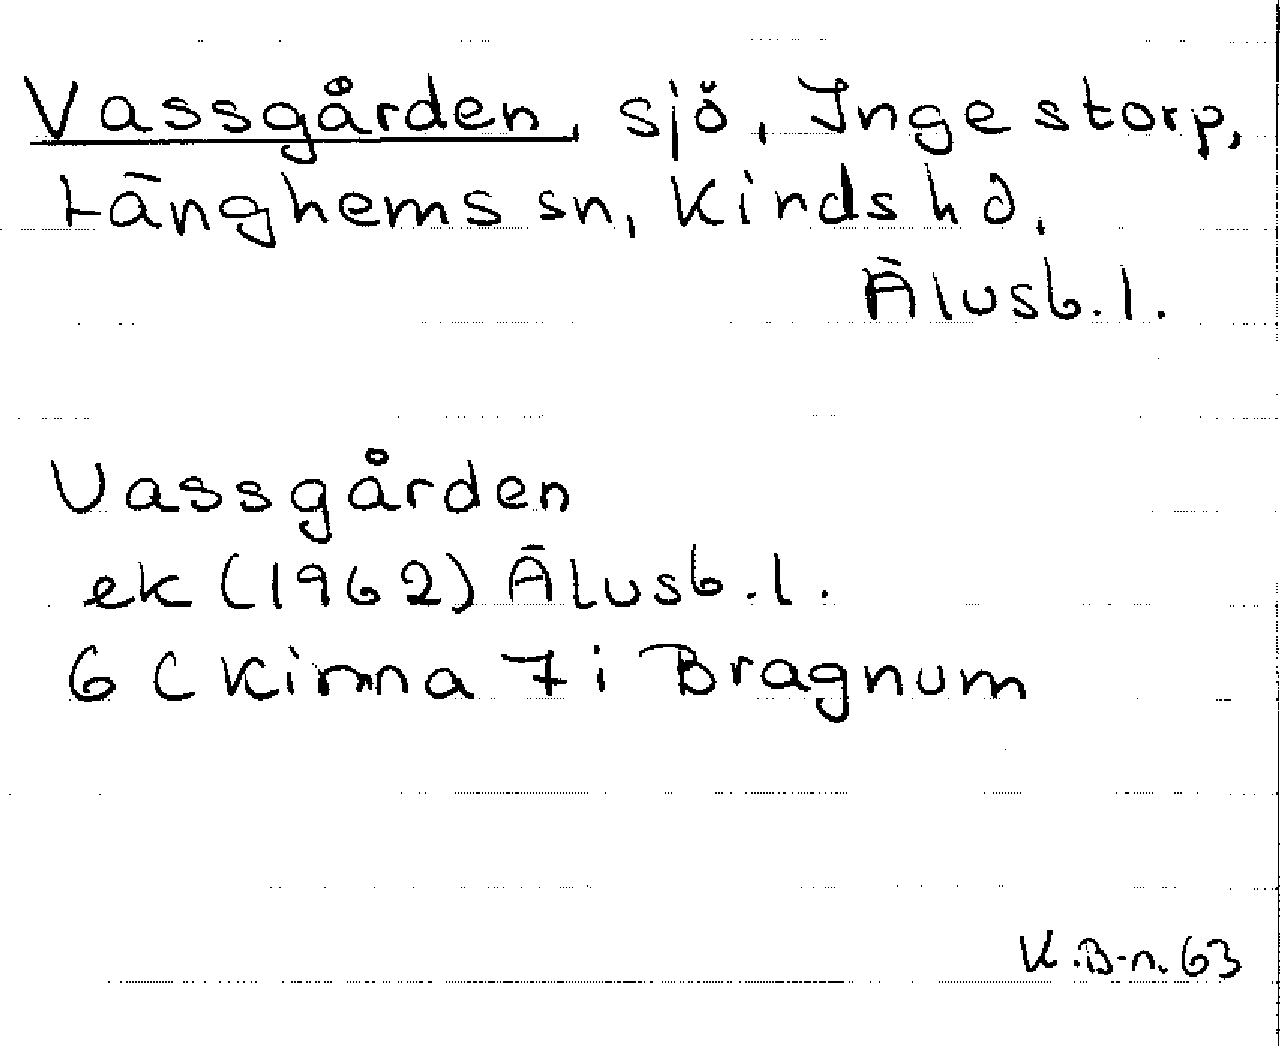 Vassgården, sjö, Ingestorp,
Länghems sn, Kinds hd,
Älvsb. l.
Vassgården
ek (1962) Älvsb. l.
6 C Kinna 7 i Bragnum
K.B-n. 63